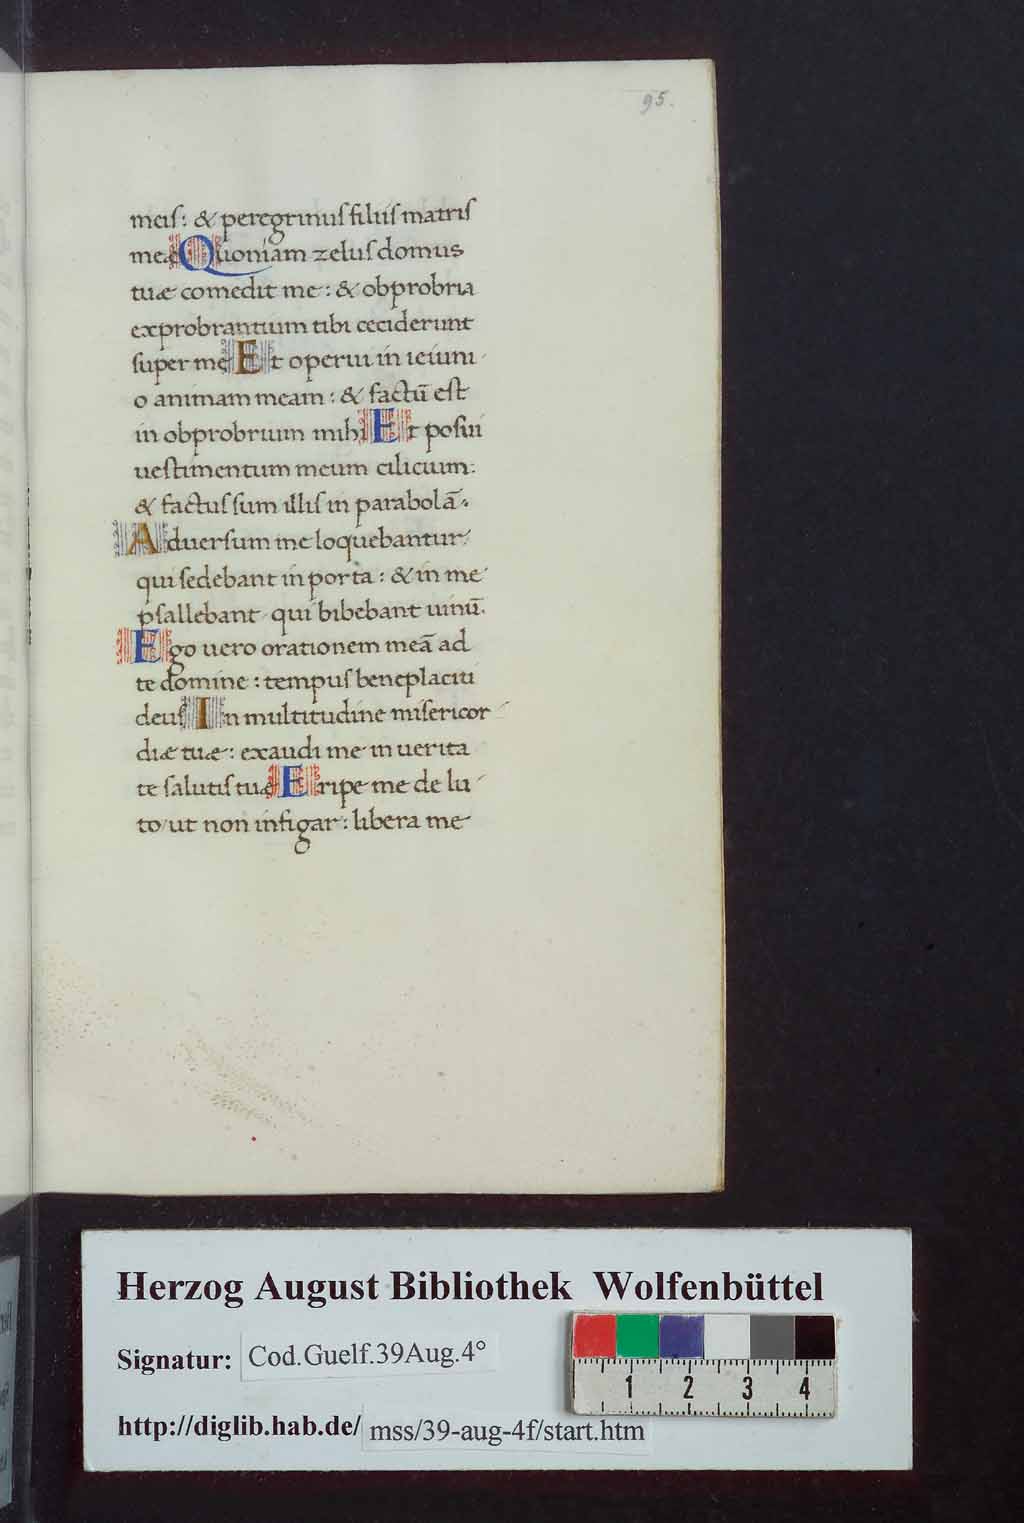 95.
meis: & peregrinus filiis matris
meæ Quoniam zelus domus
tuæ comedit me: & obprobria
exprobrantium tibi ceciderunt
super me Et operui in ieiuni
o animam meam: & factū est
in obprobrium mihi Et posui
uestimentum meum cilicium:
& factus sum illis in parabolā.
Aduersum me loquebantur
qui sedebant in porta: & in me
psallebant qui bibebant uinū.
Ego uero orationem meā ad
te domine: tempus beneplaciti
deus In multitudine misericor
diæ tuæ: exaudi me in uerita
te salutis tuæ Eripe me de lu
to/ut non infigar: libera me
Herzog August Bibliothek Wolfenbüttel
Signatur: Cod.Guelf.39Aug.4°
1 2 3 4
http://diglib.hab.de/ mss/39-aug-4f/start.htm